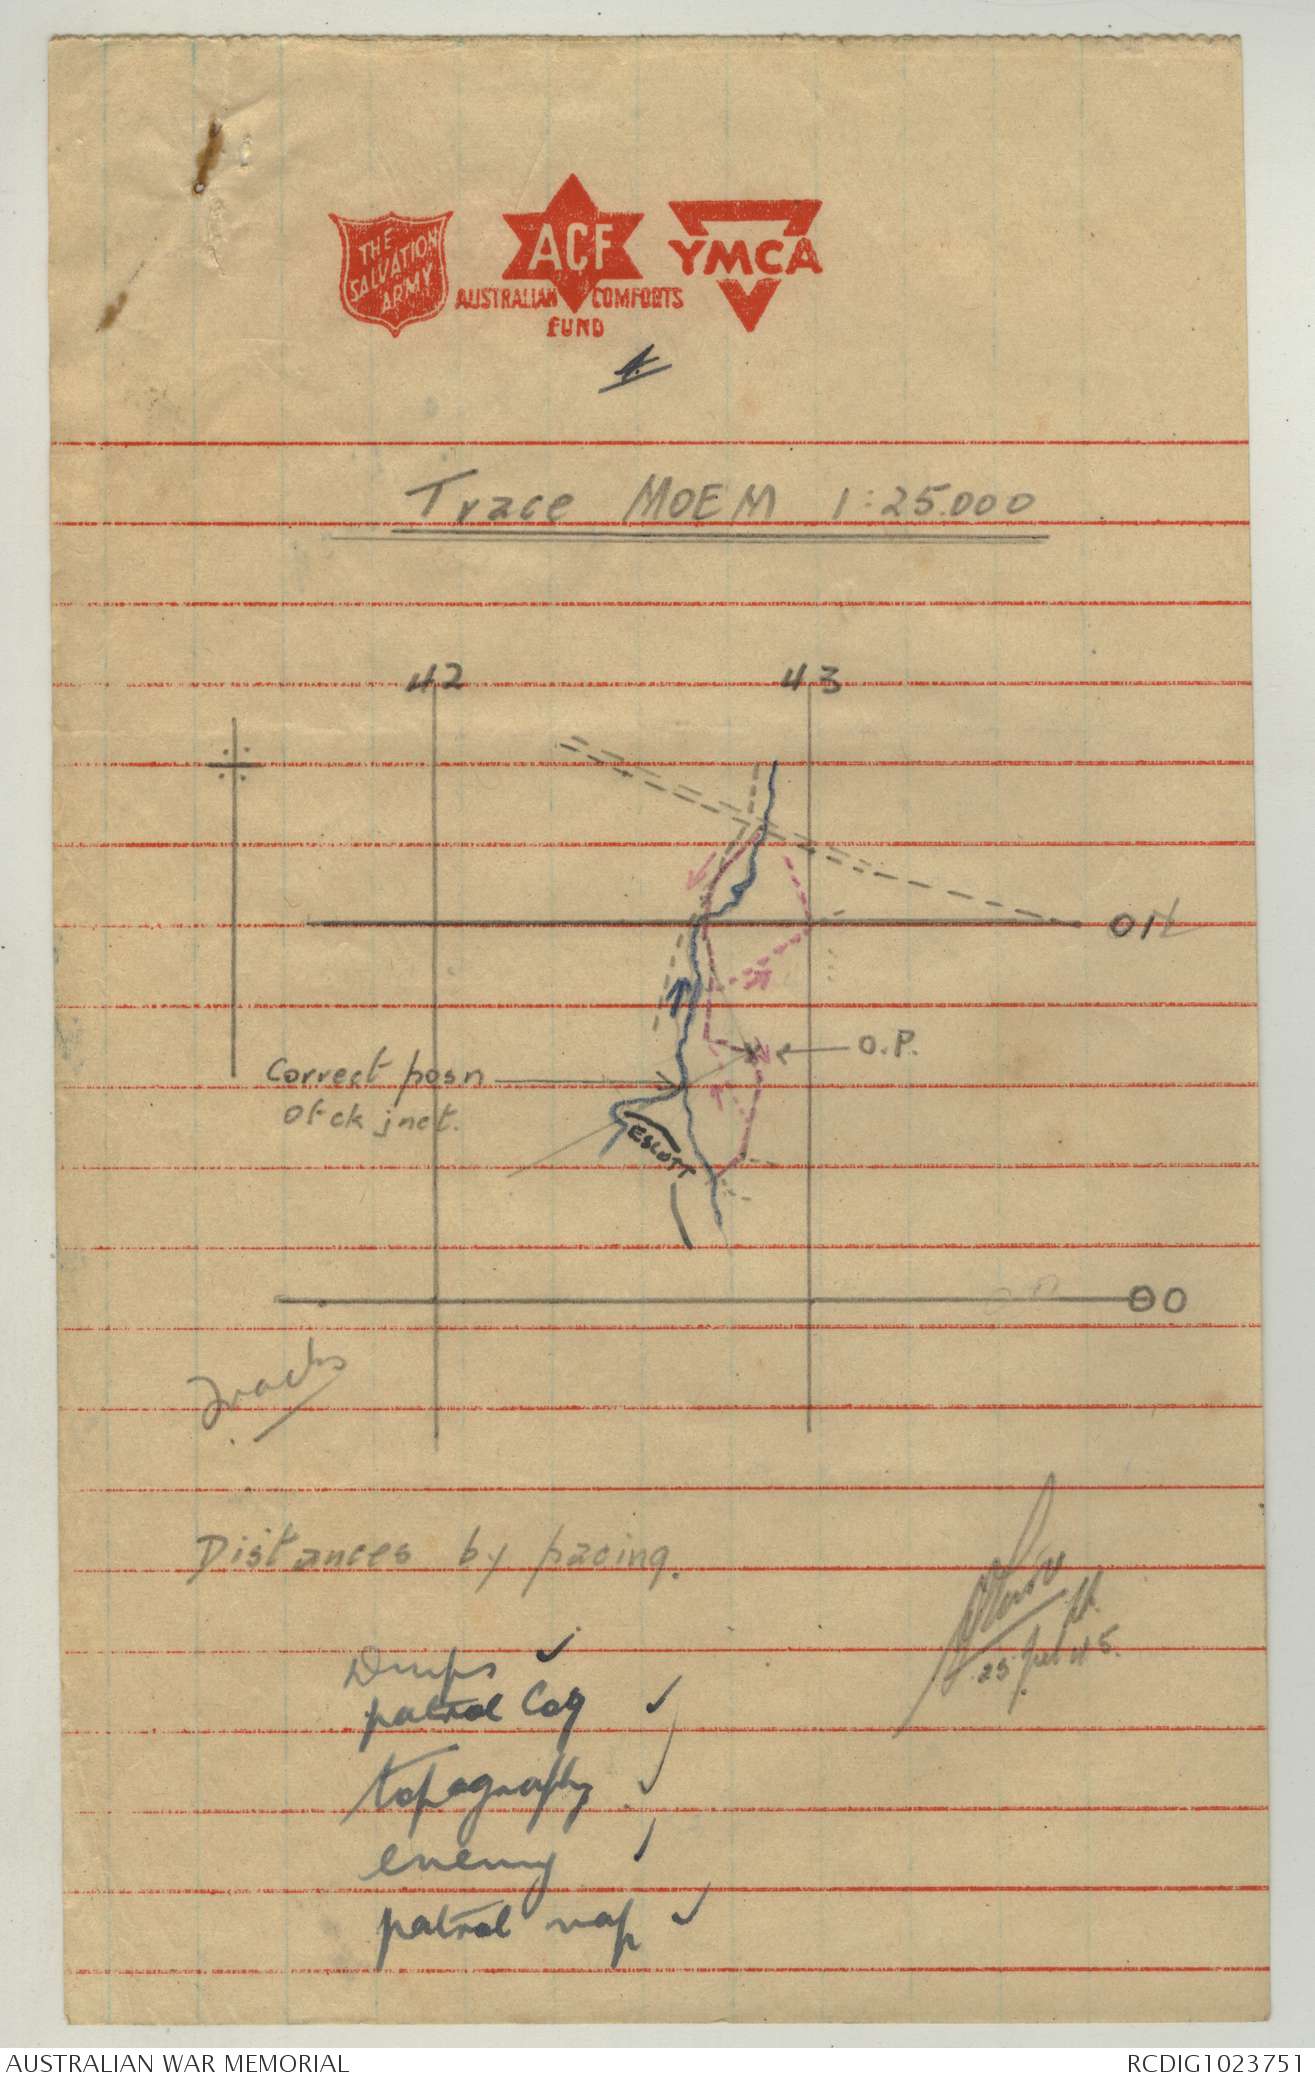 THE
SALVATION
ARMY
ACF
AUSTRALIAN COMFORTS
FUND
YMCA
Trace MOEM 1:25.000
42 43
01
O.P.
Correct posn
of ck jnct.
ESCOTT
00
Tracks
Distances by pacing.
25 Jul 45.
Dumps ✓
patrol Coy ✓
topography ✓
enemy ✓
patrol map ✓
AUSTRALIAN WAR MEMORIAL RCDIG1023751